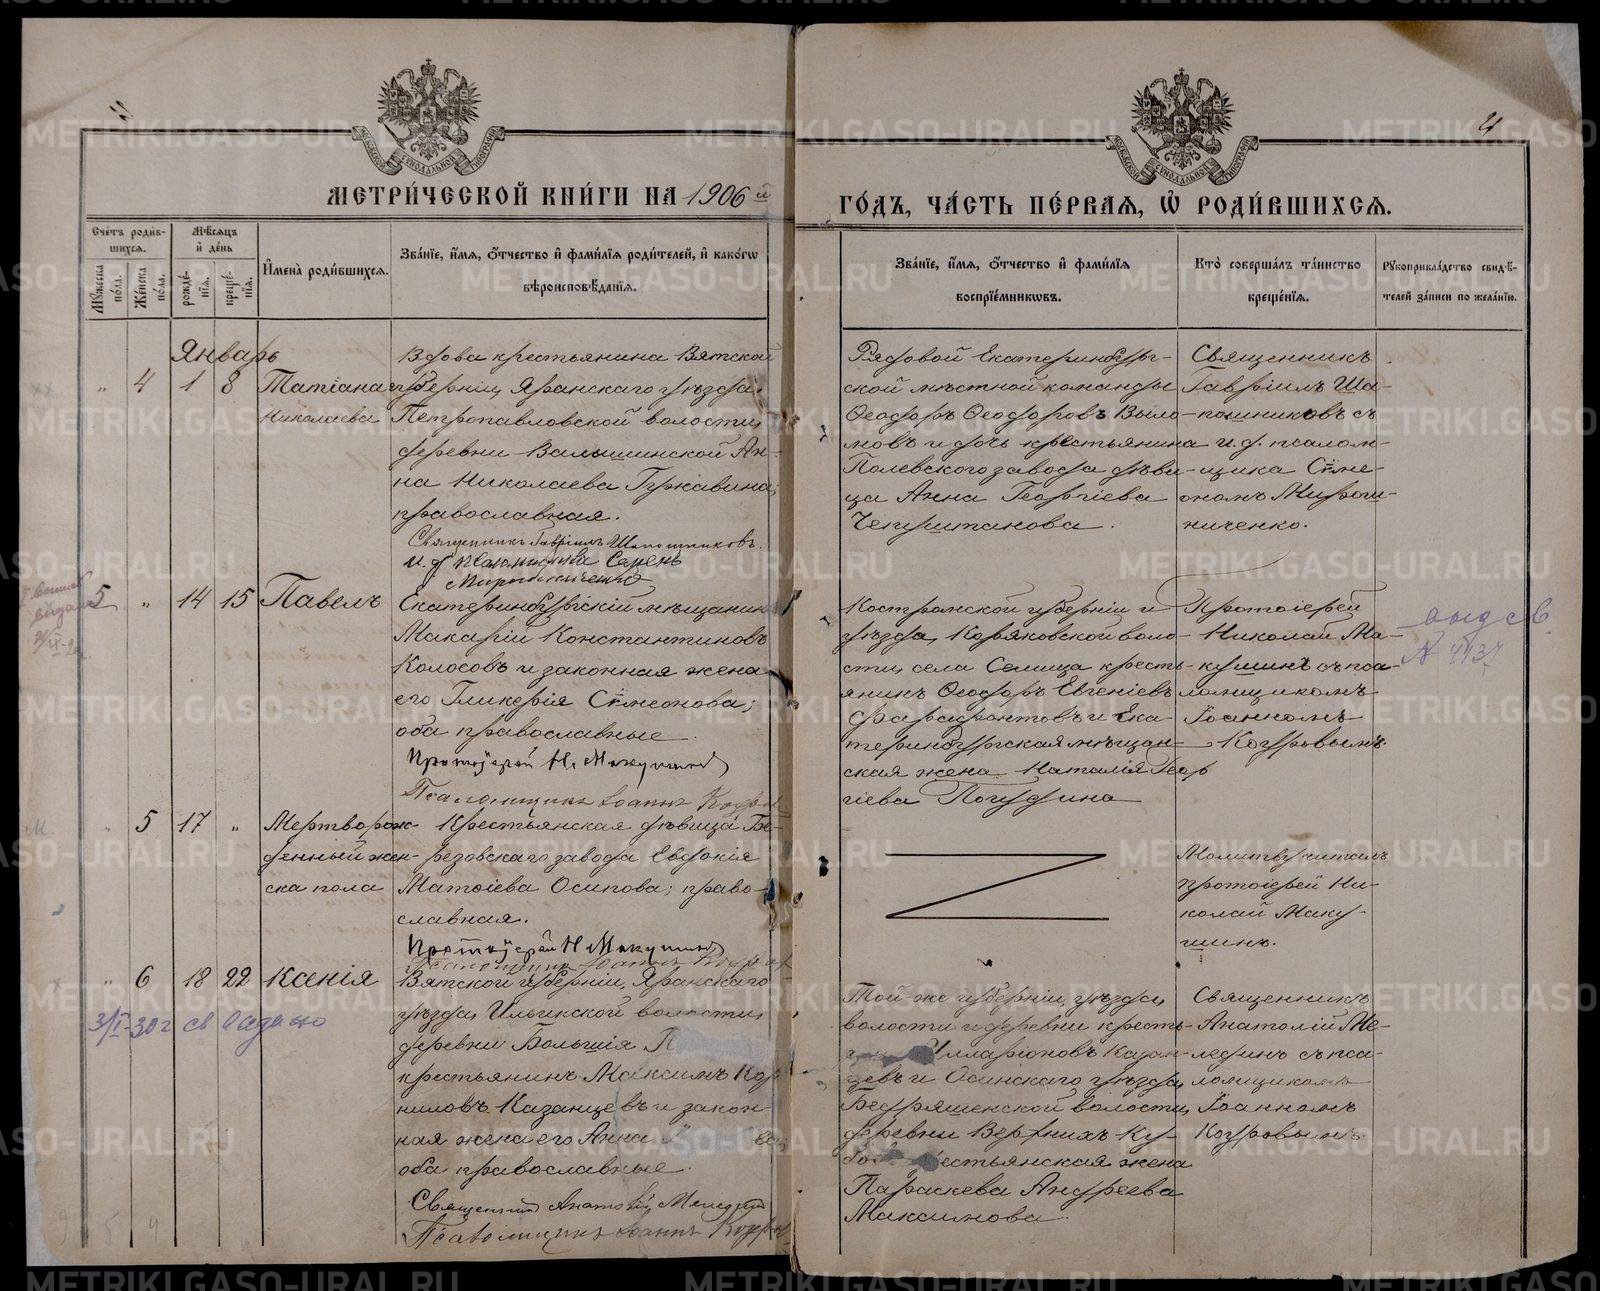 МЕТРИЧЕСКОЙ КНИГИ НА 1906 й
ГОДЪ, ЧАСТЬ ПЕРВАЯ, Ѡ РОДИВШИХСЯ.
4
Счетъ родив-
шихся.
Мѣсяцъ
и день
Мужеска
пола.
Женска
пола.
рожде-
нія.
креще-
нія.
Имена родившихся.
Званіе, имя, отчество и фамилія родителей, и какогѡ
вѣроисповѣданія.
Званіе, имя, отчество и фамилія
воспріемникѡвъ.
Кто совершалъ таинство
крещенія.
Рукоприкладство свидѣ-
телей записи по желанію.
Январь
" 4 1 8 Татіана
Николаева
Вдова крестьянина Вятской
губерніи, Яранскаго уѣзда,
Петропавловской волости,
деревни Валышинской Ан-
на Николаева Гуркавина;
православная.
Священникъ Гавріилъ Шапошниковъ.
и. д. псаломщика Семенъ
Мирошниченко
Рядовой Екатеринбург-
ской мѣстной команды
Ѳеодоръ Ѳеодоровъ Выло-
мовъ и дочь крестьянина
Полевского завода дѣви-
ца Анна Георгіева
Чепуштанова.
Священникъ
Гавріилъ Ша-
пошниковъ съ
и. д. псалом-
щика Сѵме-
ономъ Мирош-
ниченко.
5 " 14 15 Павелъ
Екатеринбургскій мѣщанинъ
Макарій Константиновъ
Колосовъ и законная жена
его Гликерія Сѵмеонова;
оба православные.
Протоіерей Н. Макушинъ
Псаломщикъ Іоаннъ
Костромской губерніи и
уѣзда, Коряковской воло-
сти, села Селища кресть-
янинъ Ѳеодоръ Евгеніевъ
Фарафонтовъ и Ека-
теринбургская мѣщан-
ская жена Наталія Геор
гіева Погудина
Протоіерей
Николай Ма-
кушинъ съ пса-
ломщикомъ
Іоанномъ
Когуровымъ.
выд св.
№ 4137
" 5 17 " Мертворож-
денный жен-
ска пола
Крестьянская дѣвица Бе-
резовскаго завода Евдокія
Матѳіева Осипова; право-
славная.
Протоіерей Н Макушинъ
Псаломщикъ Іоаннъ
Молитву читалъ
протоіерей Ни-
колай Маку-
шинъ.
" 6 18 22 Ксенія
3/I-30 г св выдано
Вятской губерніи, Яранскаго
уѣзда, Ильинской волости,
деревни Большія П
крестьянинъ Максимъ Кор
ниловъ Казанцевъ и закон-
ная жена его Анна
оба православные.
Священникъ Анатолій Меледин
Псаломщикъ Іоаннъ
Той-же губерніи, уѣзда,
волости и деревни кресть-
Илларіоновъ Казан-
цевъ и Осинскаго уѣзда,
Бедряшенской волости,
деревни Верхнихъ Ку-
естьянская жена
Параскева Андреева
Максимова.
Священникъ
Анатолій Ме-
лединъ съ пса-
ломщикомъ
Іоанномъ
Когуровымъ.
METRIKI.GASO-URAL.RU